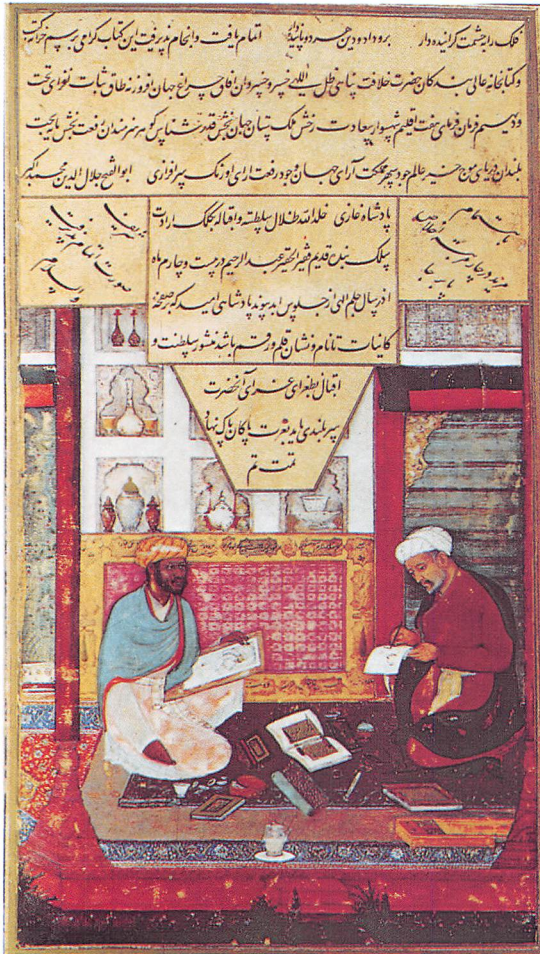 فلک را به حشمت دار برو داد و دین هر دو پاینده دار اتمام یافت و انجام پذیرفت این کتاب گرامی برسم خزانه
و کتابخانه عالی بندگان حضرت خلافت پناهی ظل اللهی خسرو خسروان آفاق چراغ جهان افروز نه طاق ثبات تخت
و دیهیم فرمان فرمای هفت اقلیم شهسوار سعادت رخش ملک ستان جهان بخش قدرشناس گوهر هنرمندان رفعت بخش
بلندان دریای موج خیز عالم جود سپهر مملکت آرای جهان وجود رفعت آرای اورنگ سرافرازی ابو الفتح جلال الدین محمد اکبر
پادشاه غازی خلد الله ظلال سلطنته و اقباله بکلک ارادت
سلک بنده قدیم فقیر الحقیر عبد الرحیم در بیست و چارم ماه
آذر سال الهی از جلوس ابد پیوند پادشاهی امید که بر صفحه
کاینات تا نام و نشان قلم و رقم باشد منشور سلطنت و
اقبال بطغرای غرای آنحضرت
سربلندی یابد بعزت پاکان پاک نهاد
تمت تم
باهتمام
شریف
صورت اتمام پذیرفت
والسلام